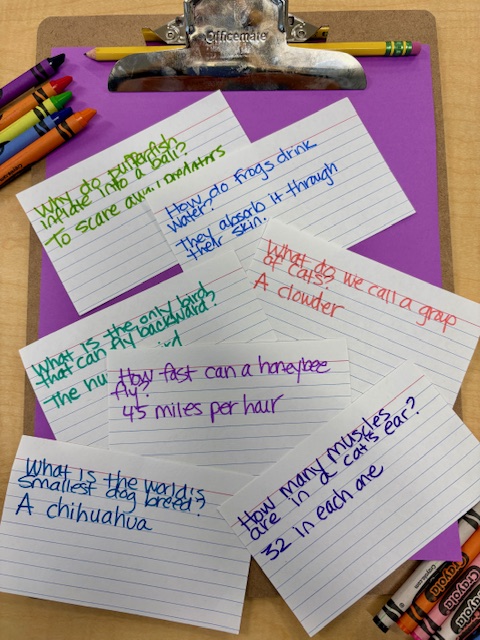 Officemate
Why do pufferfish
inflate into a ball?
To scare away predators
How do frogs drink
water?
they absorb it through
their skin.
What do we call a group
of cats?
A clowder
What is the only bird
that can fly backward?
The
How fast can a honeybee
fly?
45 miles per hour
What is the world's
smallest dog breed?
A chihuahua
How many muscles
are in a cat's ear?
32 in each one
Crayola
Crayola
Crayola